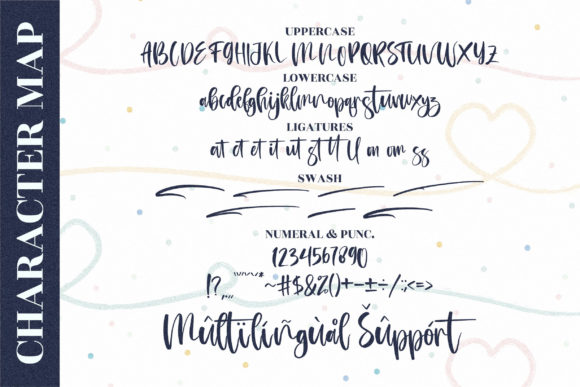 CHARACTER MAP
UPPERCASE
ABCDEFGHIJKLMNOPQRSTUVWXYZ
LOWERCASE
abcdefghijklmnopqrstuvwxyz
LIGATURES
at et ct it ut st tt ll on om ss
SWASH
NUMERAL & PUNC.
1234567890
~#$&%()+-±÷/:;<=>
Múltïlíñgùål Šûppórt